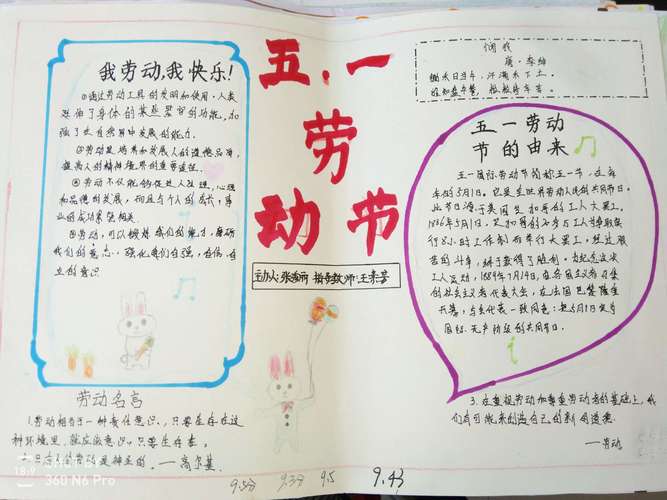 我劳动,我快乐!
①通过劳动工具的发明和使用,人类
延伸了身体的某些器官的功能,加
强了在自然界中发展的能力。
②劳动是培养和发展人的道德品净,
提高人的精神境界的重要途径。
④劳动不仅能够促进人生理,心理
和品德的发展,而且与个人的成长,事
业的成功紧密相关。
⑤劳动,可以锻炼我们的能力,磨砺
我们的意志,强化我们自强,自信,自
立的意识
劳动名言
1.劳动相当于一种责任意识,只要生存在这
种环境里,就应该意识,只要生存在,
劳动是神圣的。——高尔基
五.一
劳
动 节
主办人:张 丽 指导教师:王
唐·李绅
锄禾日当午,汗滴禾下土。
谁知盘中餐,粒粒皆辛苦。
五一劳动
节的由来
五一国际劳动节简称五一节,在每
年的5月1日。它是全世界劳动人民的共同节日。
此节源于美国芝加哥的工人大罢工。
1886年5月1日,芝加哥的 工人为争取实
行8小时工作制而举行大罢工,经过艰
苦的斗争,终于获得了胜利。为纪念这次
工人运动,1889年7月14日,在各国马克思主义者召集
的社会主义者代表大会,在法国巴黎隆重
开幕,与会代表一致同意:把5月1日定为
国际无产阶级的共同节日。
3.在重视劳动和尊重劳动者的基础上,我
们有可能来创造自己的新的道德。
——劳动
9.5分 9.3分 9.5 9.4分
18:9
360 N6 Pro